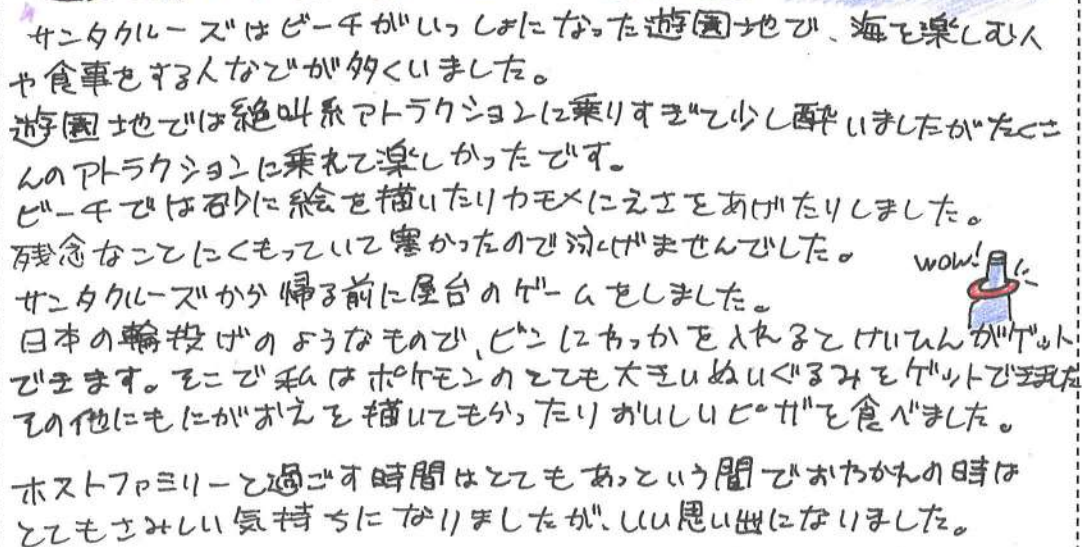 サンタクルーズはビーチがいっしょになった遊園地で、海を楽しむ人
や食事をする人などが多くいました。
遊園地では絶叫系アトラクションに乗りすぎて少し酔いましたがたくさ
んのアトラクションに乗れて楽しかったです。
ビーチでは砂に絵を描いたりカモメにえさをあげたりしました。
残念なことにくもっていて寒かったので泳げませんでした。
wow!
サンタクルーズから帰る前に屋台のゲームをしました。
日本の輪投げのようなもので、ビンにわっかを入れるとけいひんがゲット
できます。そこで私はポケモンのとても大きいぬいぐるみをゲットできました
その他にもにがおえを描いてもらったりおいしいピザを食べました。
ホストファミリーと過ごす時間はとてもあっという間でおわかれの時は
とてもさみしい気持ちになりましたが、いい思い出になりました。